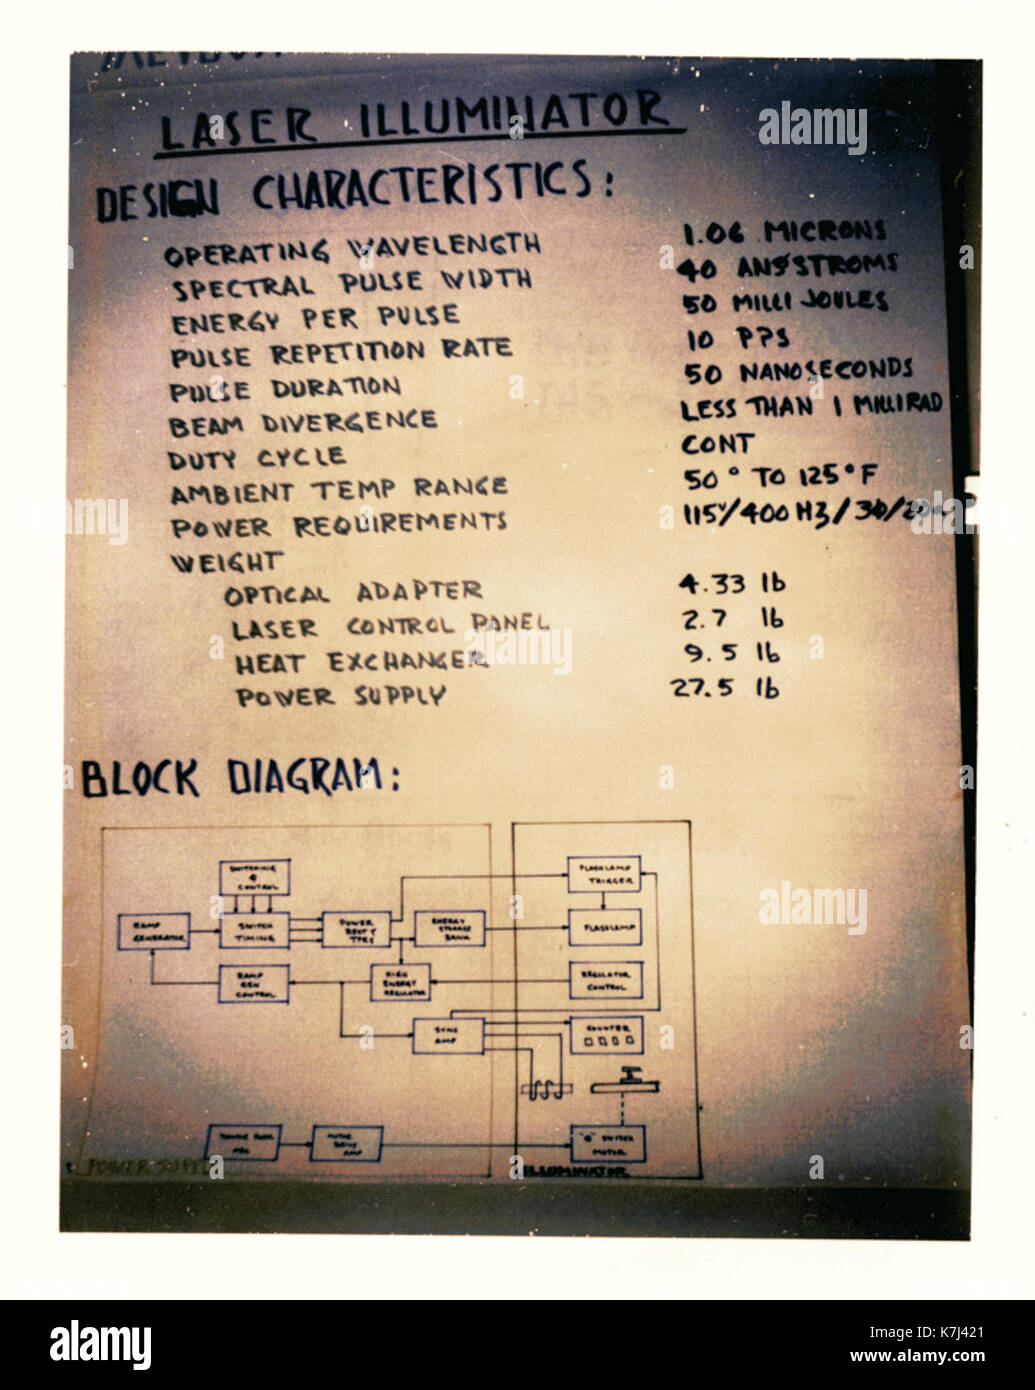 LASER ILLUMINATOR
DESIGN CHARACTERISTICS:
OPERATING WAVELENGTH 1.06 MICRONS
SPECTRAL PULSE WIDTH 40 ANGSTROMS
ENERGY PER PULSE 50 MILLI JOULES
PULSE REPETITION RATE 10 PPS
PULSE DURATION 50 NANOSECONDS
BEAM DIVERGENCE LESS THAN 1 MILLIRAD
DUTY CYCLE CONT
AMBIENT TEMP RANGE 50° TO 125°F
POWER REQUIREMENTS 115V/400 HZ/3Ø/
WEIGHT
OPTICAL ADAPTER 4.33 lb
LASER CONTROL PANEL 2.7 lb
HEAT EXCHANGER 9.5 lb
POWER SUPPLY 27.5 lb
BLOCK DIAGRAM:
SWITCHING
& CONTROL
FLASHLAMP
TRIGGER
RAMP
GENERATOR
SWITCH
TIMING
POWER
ENERGY
STORAGE
BANK
FLASHLAMP
RAMP
GEN
CONTROL
HIGH
ENERGY
REGULATOR
REGULATOR
CONTROL
SYNC
AMP
COUNTER
MOTOR
DRIVE
AMP
"Q" SWITCH
MOTOR
POWER SUPPLY
ILLUMINATOR
alamy
Image ID: K7J421
www.alamy.com